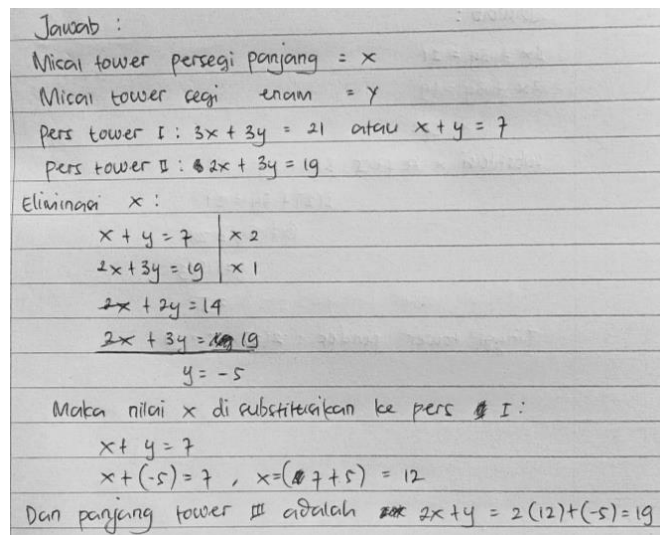 Jawab :
Misal tower persegi panjang = x
Misal tower segi enam = y
Pers tower I : 3x + 3y = 21 atau x + y = 7
Pers tower II : 2x + 3y = 19
Eliminasi x :
x + y = 7 | x 2
2x + 3y = 19 | x 1
2x + 2y = 14
2x + 3y = 19
y = -5
Maka nilai x di substitusikan ke pers I :
x + y = 7
x + (-5) = 7 , x = (7 + 5) = 12
Dan panjang tower III adalah 2x + y = 2(12) + (-5) = 19